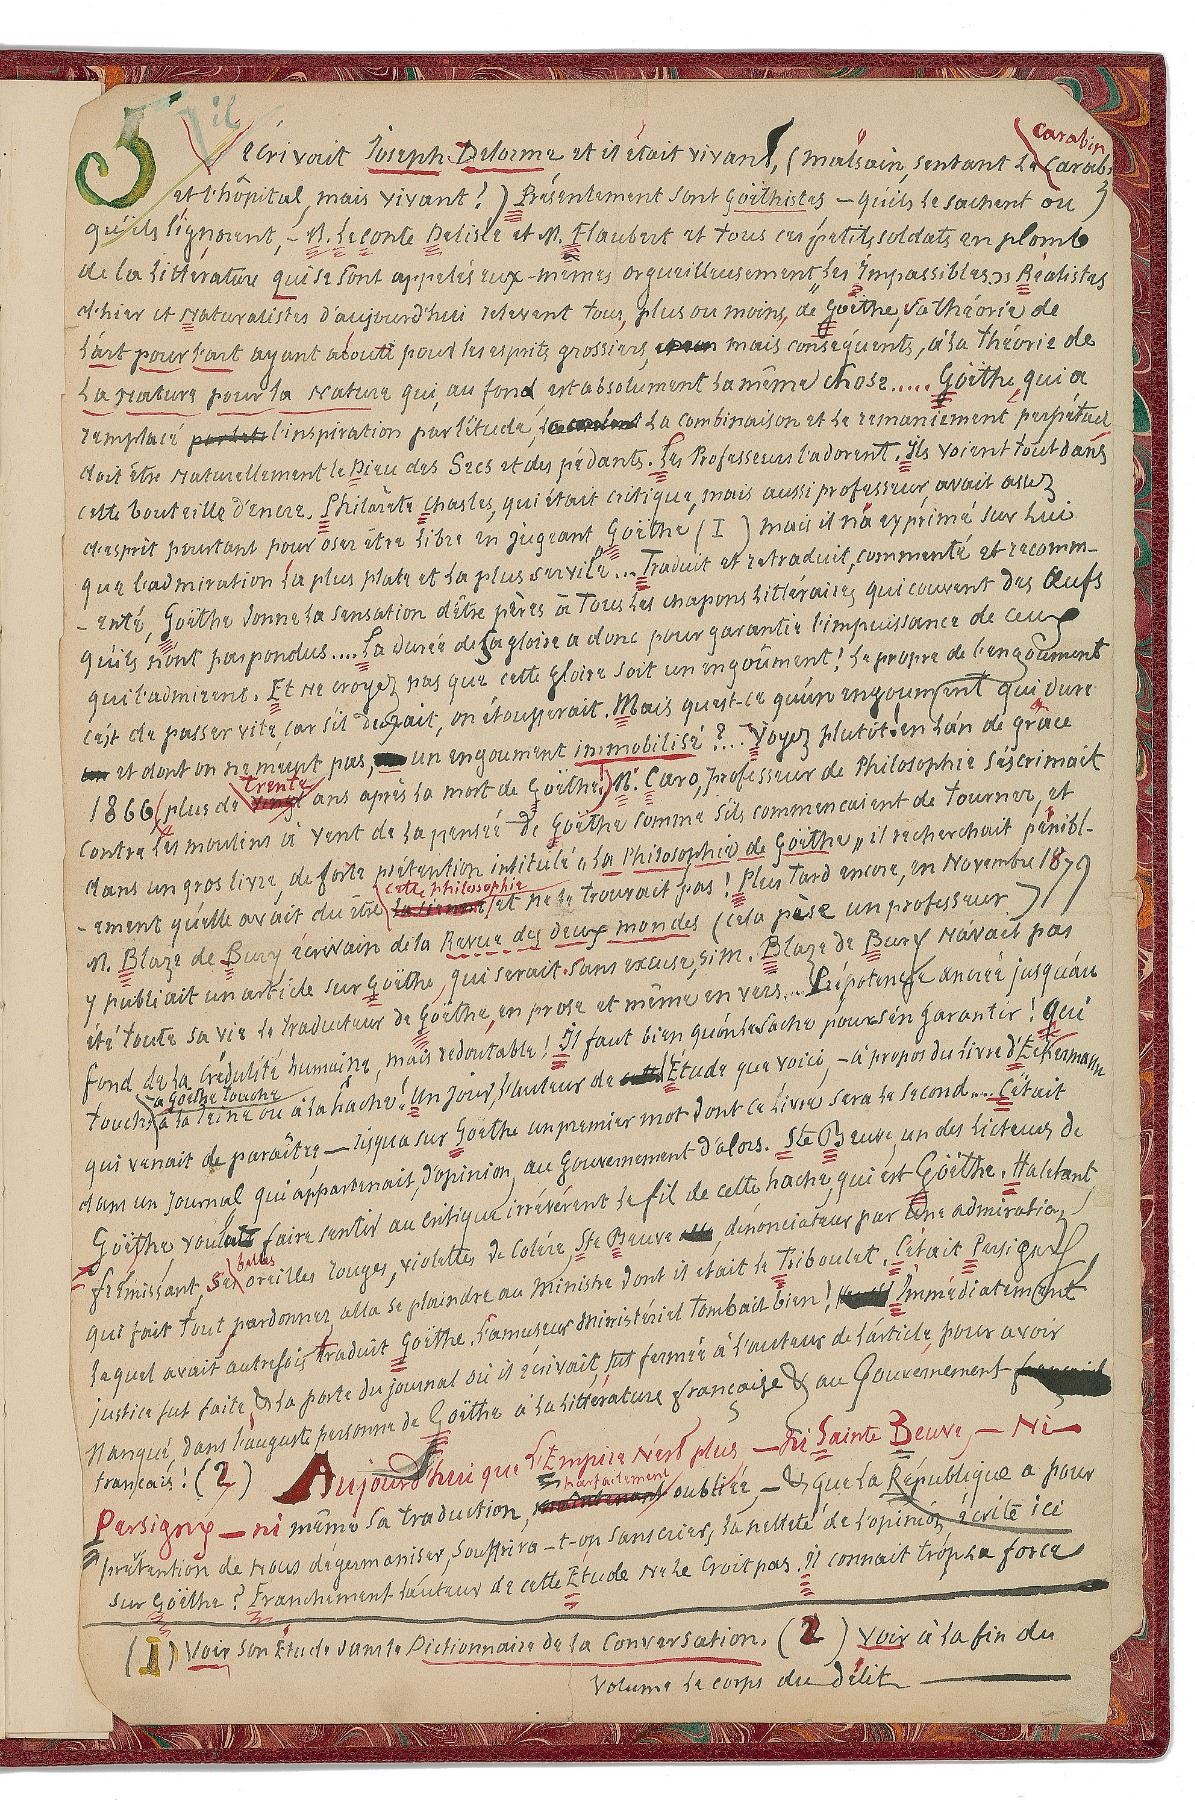 5 il
écrivait Joseph Delorme et il était vivant, (malsain, sentant le carabin
carabin
et l'hôpital, mais vivant!) Présentement sont Goëthistes – qu'ils le sachent ou
qu'ils l'ignorent, – M. Leconte Delisle et M. Flaubert et tous ces petits soldats en plomb
de la littérature qui se sont appelés eux-mêmes orgueilleusement "les Impassibles". Réalistes
d'hier et Naturalistes d'aujourd'hui relèvent tous, plus ou moins, de Goëthe, sa théorie de
l'art pour l'art ayant abouti pour les esprits grossiers, mais conséquents, à la théorie de
la Nature pour la Nature qui, au fond est absolument la même chose..... Goëthe, qui a
remplacé l'inspiration par l'étude, la combinaison et le remaniement perpétuel
doit être naturellement le Dieu des Secs et des pédants. Les Professeurs l'adorent. Ils voient tout dans
cette bouteille d'encre. Philarète Chasles, qui était critique, mais aussi professeur, avait assez
d'esprit pourtant pour oser être libre en jugeant Goëthe (I) mais il n'a exprimé sur lui
que l'admiration la plus plate et la plus servile... Traduit et retraduit, commenté et recomm-
-enté, Goëthe donne la sensation d'être pères à tous les chapons littéraires qui couvent des Œufs
qu'ils n'ont pas pondus.... La durée de sa gloire a donc pour garantie l'impuissance de ceux
qui l'admirent. Et ne croyez pas que cette gloire soit un engoûment! Le propre de l'engoûment
c'est de passer vite, car s'il durait, on étoufferait. Mais qu'est-ce qu'un engoument qui dure
et dont on ne meurt pas, un engoument immobilisé?... Voyez plutôt! en l'an de grâce
1866 (plus de trente ans après la mort de Goëthe!) M. Caro, professeur de Philosophie s'escrimait
contre les moulins à vent de la pensée de Goëthe comme s'ils commençaient de tourner, et
dans un gros livre, de forte prétention intitulé "La Philosophie de Goëthe" il recherchait pénibl-
-ement qu'elle avait du être cette philosophie et ne la trouvait pas! Plus tard encore, en Novembre 1879
M. Blaze de Bury écrivain de la Revue des deux mondes (cela pèse un professeur)
y publiait un article sur Goëthe, qui serait sans excuse, si M. Blaze de Bury n'avait pas
été toute sa vie le traducteur de Goëthe, en prose et même en vers... Prépotence ancrée jusqu'au
fond de la crédulité humaine, mais redoutable! Il faut bien qu'on le sache pour s'en garantir! Qui
touche à Goëthe touche à la Reine ou à la hache! Un jour, l'auteur de l'Étude que voici, – à propos du livre d'Eckermann
qui venait de paraître, – risqua sur Goëthe un premier mot dont ce livre sera le second.... C'était
dans un journal qui appartenait, d'opinion, au Gouvernement d'alors. Ste Beuve, un des licteurs de
Goëthe, voulut faire sentir au critique irrévérent le fil de cette hache, qui est Goëthe. Haletant,
frémissant, ses belles oreilles rouges, violettes de colère, Ste Beuve dénonciateur par une admiration
qui fait tout pardonner, alla se plaindre au Ministre dont il était le Triboulet. C'était Persigny
lequel avait autrefois traduit Goëthe. L'amuseur Ministériel tombait bien! Immédiatement
justice fut faite & la porte du journal où il écrivait, fut fermée à l'auteur de l'article, pour avoir
Manqué, dans l'auguste personne de Goëthe à la littérature française & au Gouvernement
français! (2) Aujourd'hui que l'Empire n'est plus – Ni Sainte Beuve, – Ni
Persigny – ni même sa traduction, parfaitement oubliée, – & que la République a pour
prétention de nous dégermaniser, souffrira-t-on sans crier, la netteté de l'opinion écrite ici
sur Goëthe? Franchement l'auteur de cette Étude ne le croit pas. Il connait trop la force
(1) Voir son Étude dans le Dictionnaire de la Conversation. (2) Voir à la fin du
Volume le corps du délit